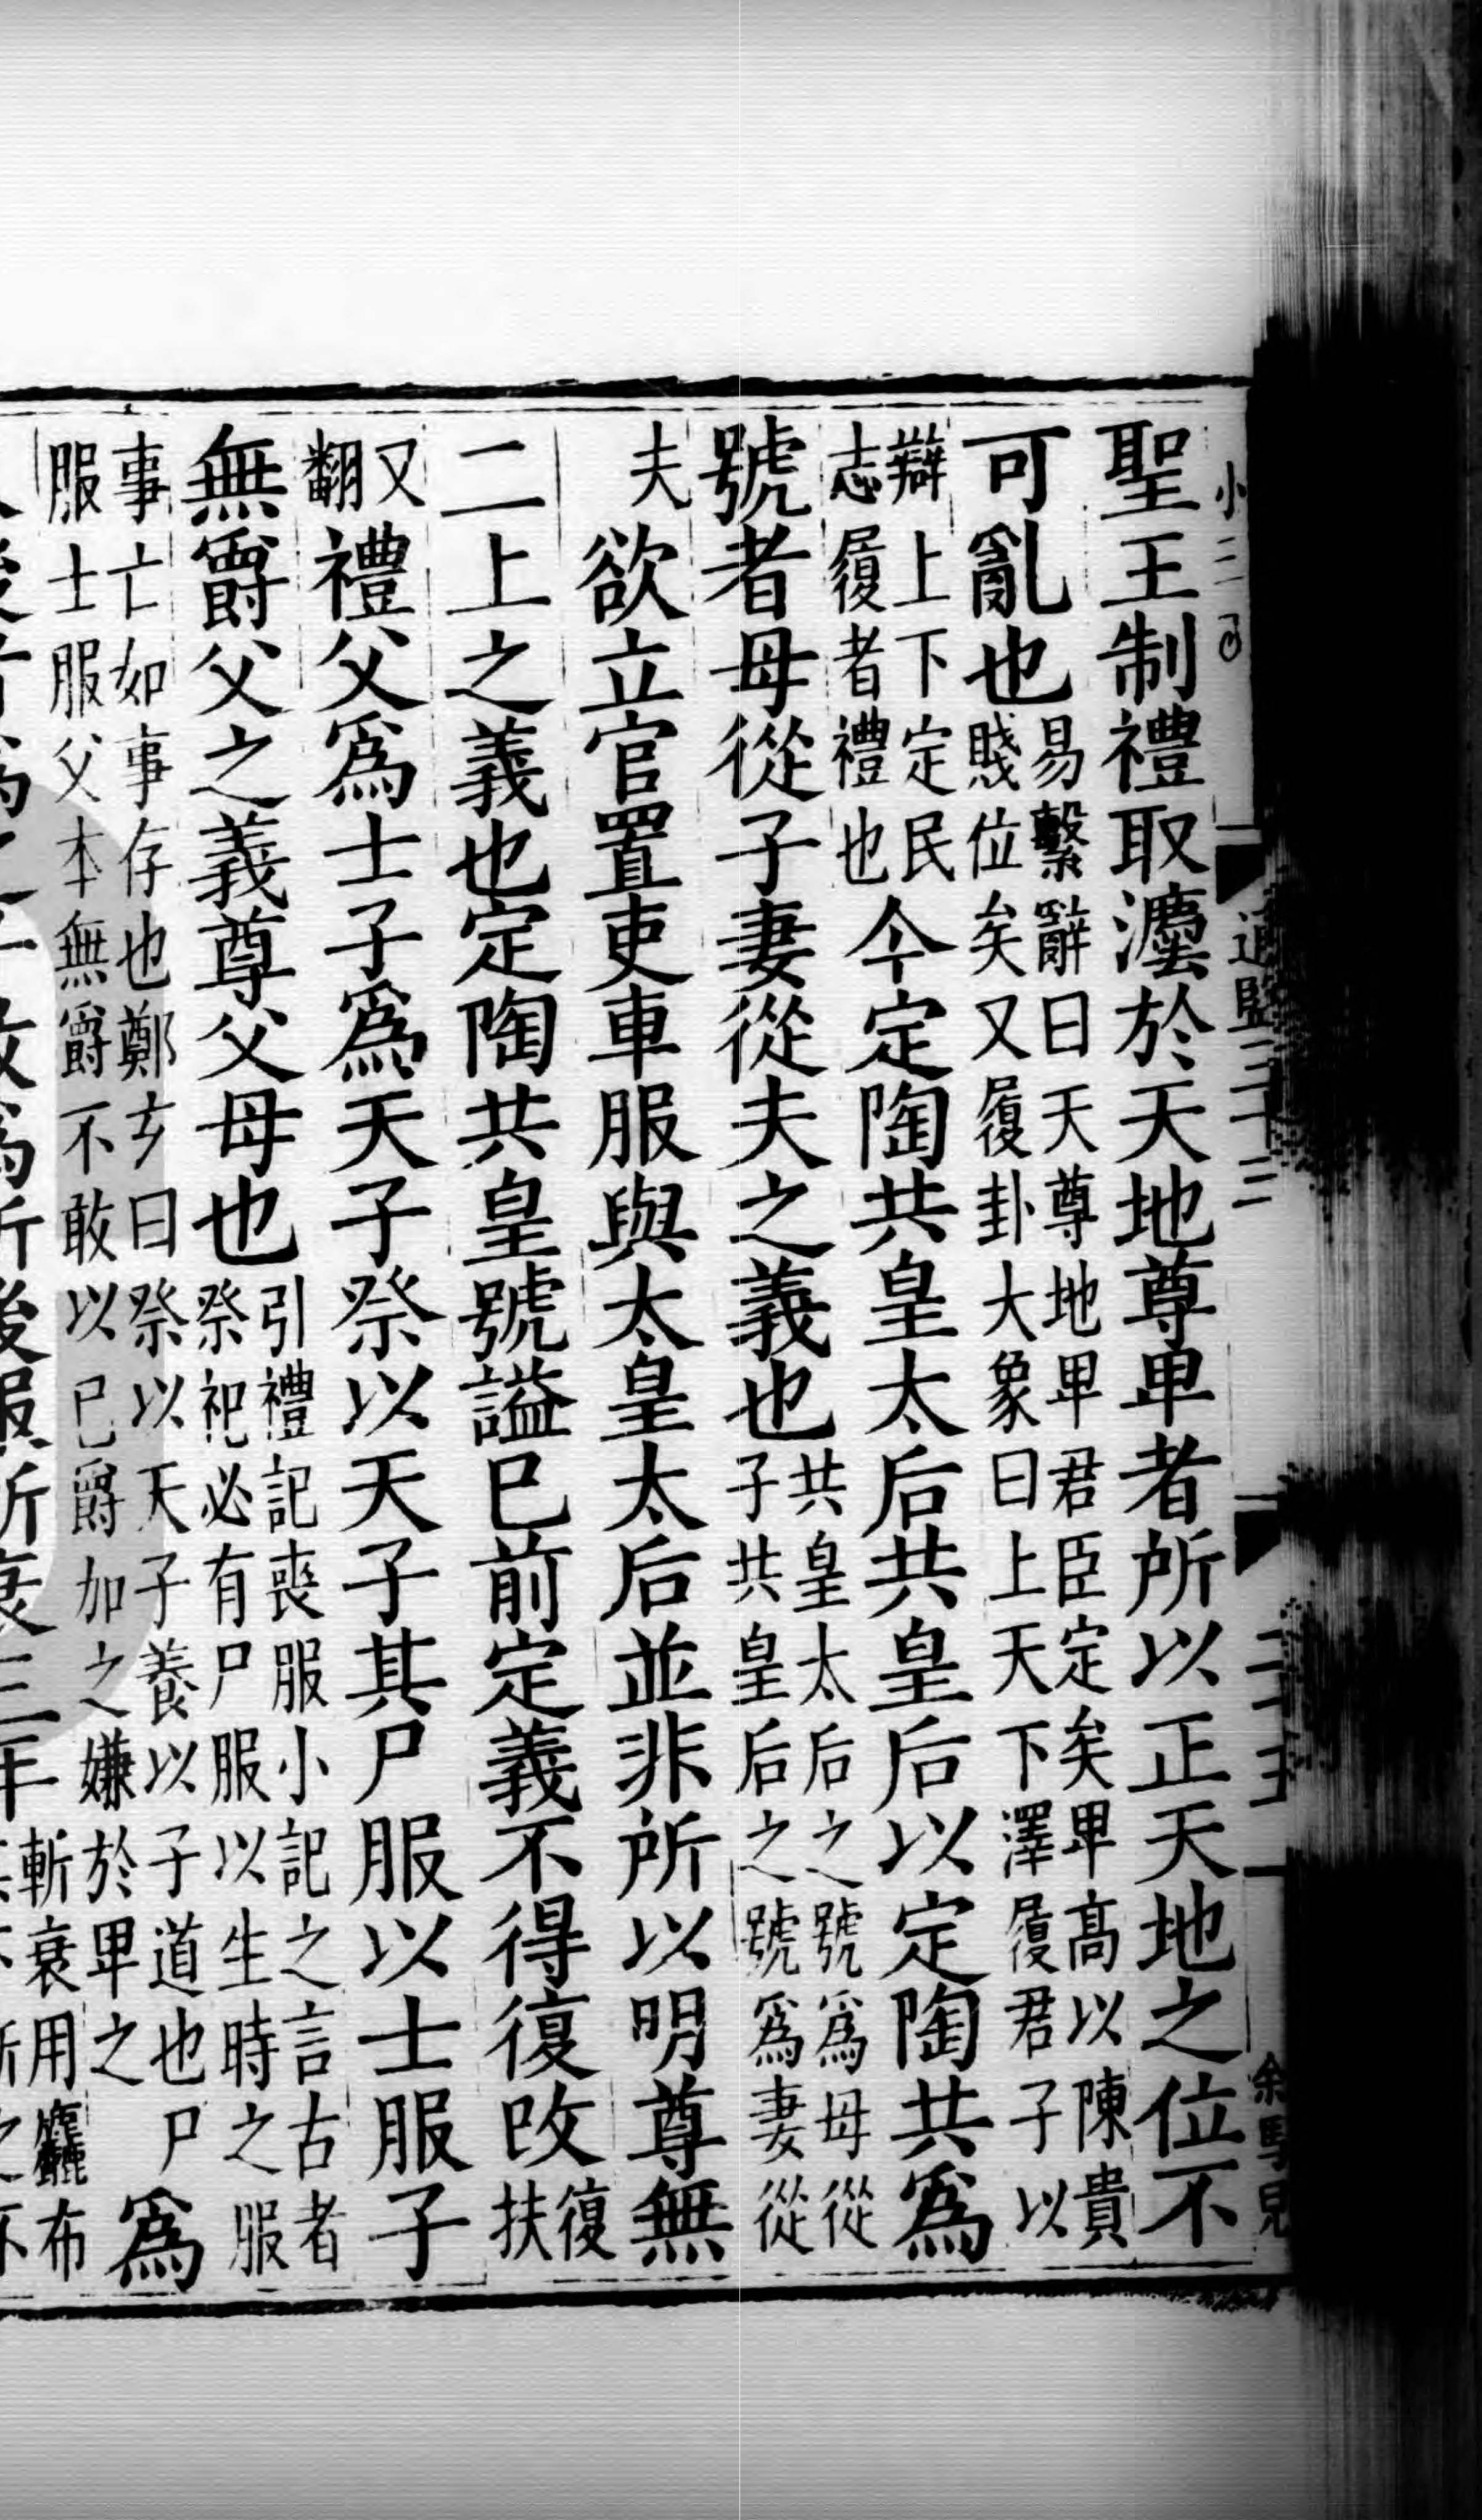 聖王制禮取灋於天地尊卑者所以正天地之位不
可亂也易繫辭曰天尊地卑君臣定矣卑高以陳貴
賤位矣又履卦大象曰上天下澤履君子以
辯上下定民
志履者禮也今定陶共皇太后共皇后以定陶共爲
號者母從子妻從夫之義也共皇太后之號爲母從
子共皇后之號爲妻從
夫欲立官置吏車服與太皇太后並非所以明尊無
二上之義也定陶共皇號謚已前定義不得復改復
扶
又
翻禮父爲士子爲天子祭以天子其尸服以士服子
無爵父之義尊父母也引禮記喪服小記之言古者
祭祀必有尸服以生時之服
事亡如事存也鄭玄曰祭以天子養以子道也尸
服士服父本無爵不敢以已爵加之嫌於卑之爲
斬衰用麤布
小三
通鑑三十三
二十五